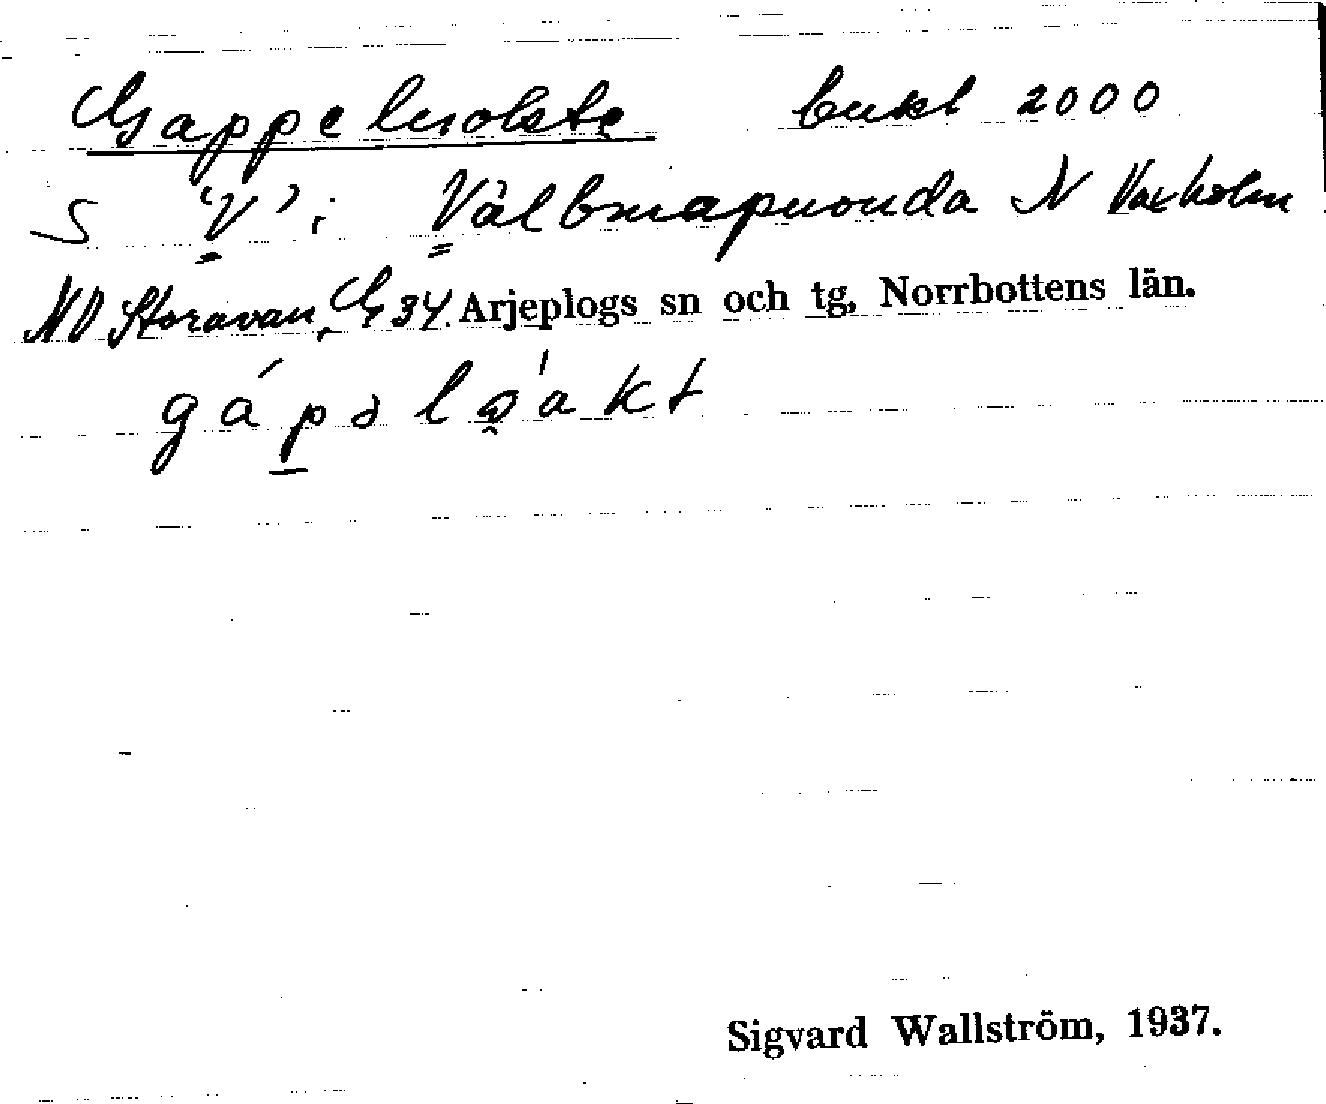 Gappeluokte bukt 2000
S 'V' i Välbmapuouda N Vaxholm
NO Storavan, G 34. Arjeplogs sn och tg, Norrbottens län.
gápəlo̯'akt
Sigvard Wallström, 1937.